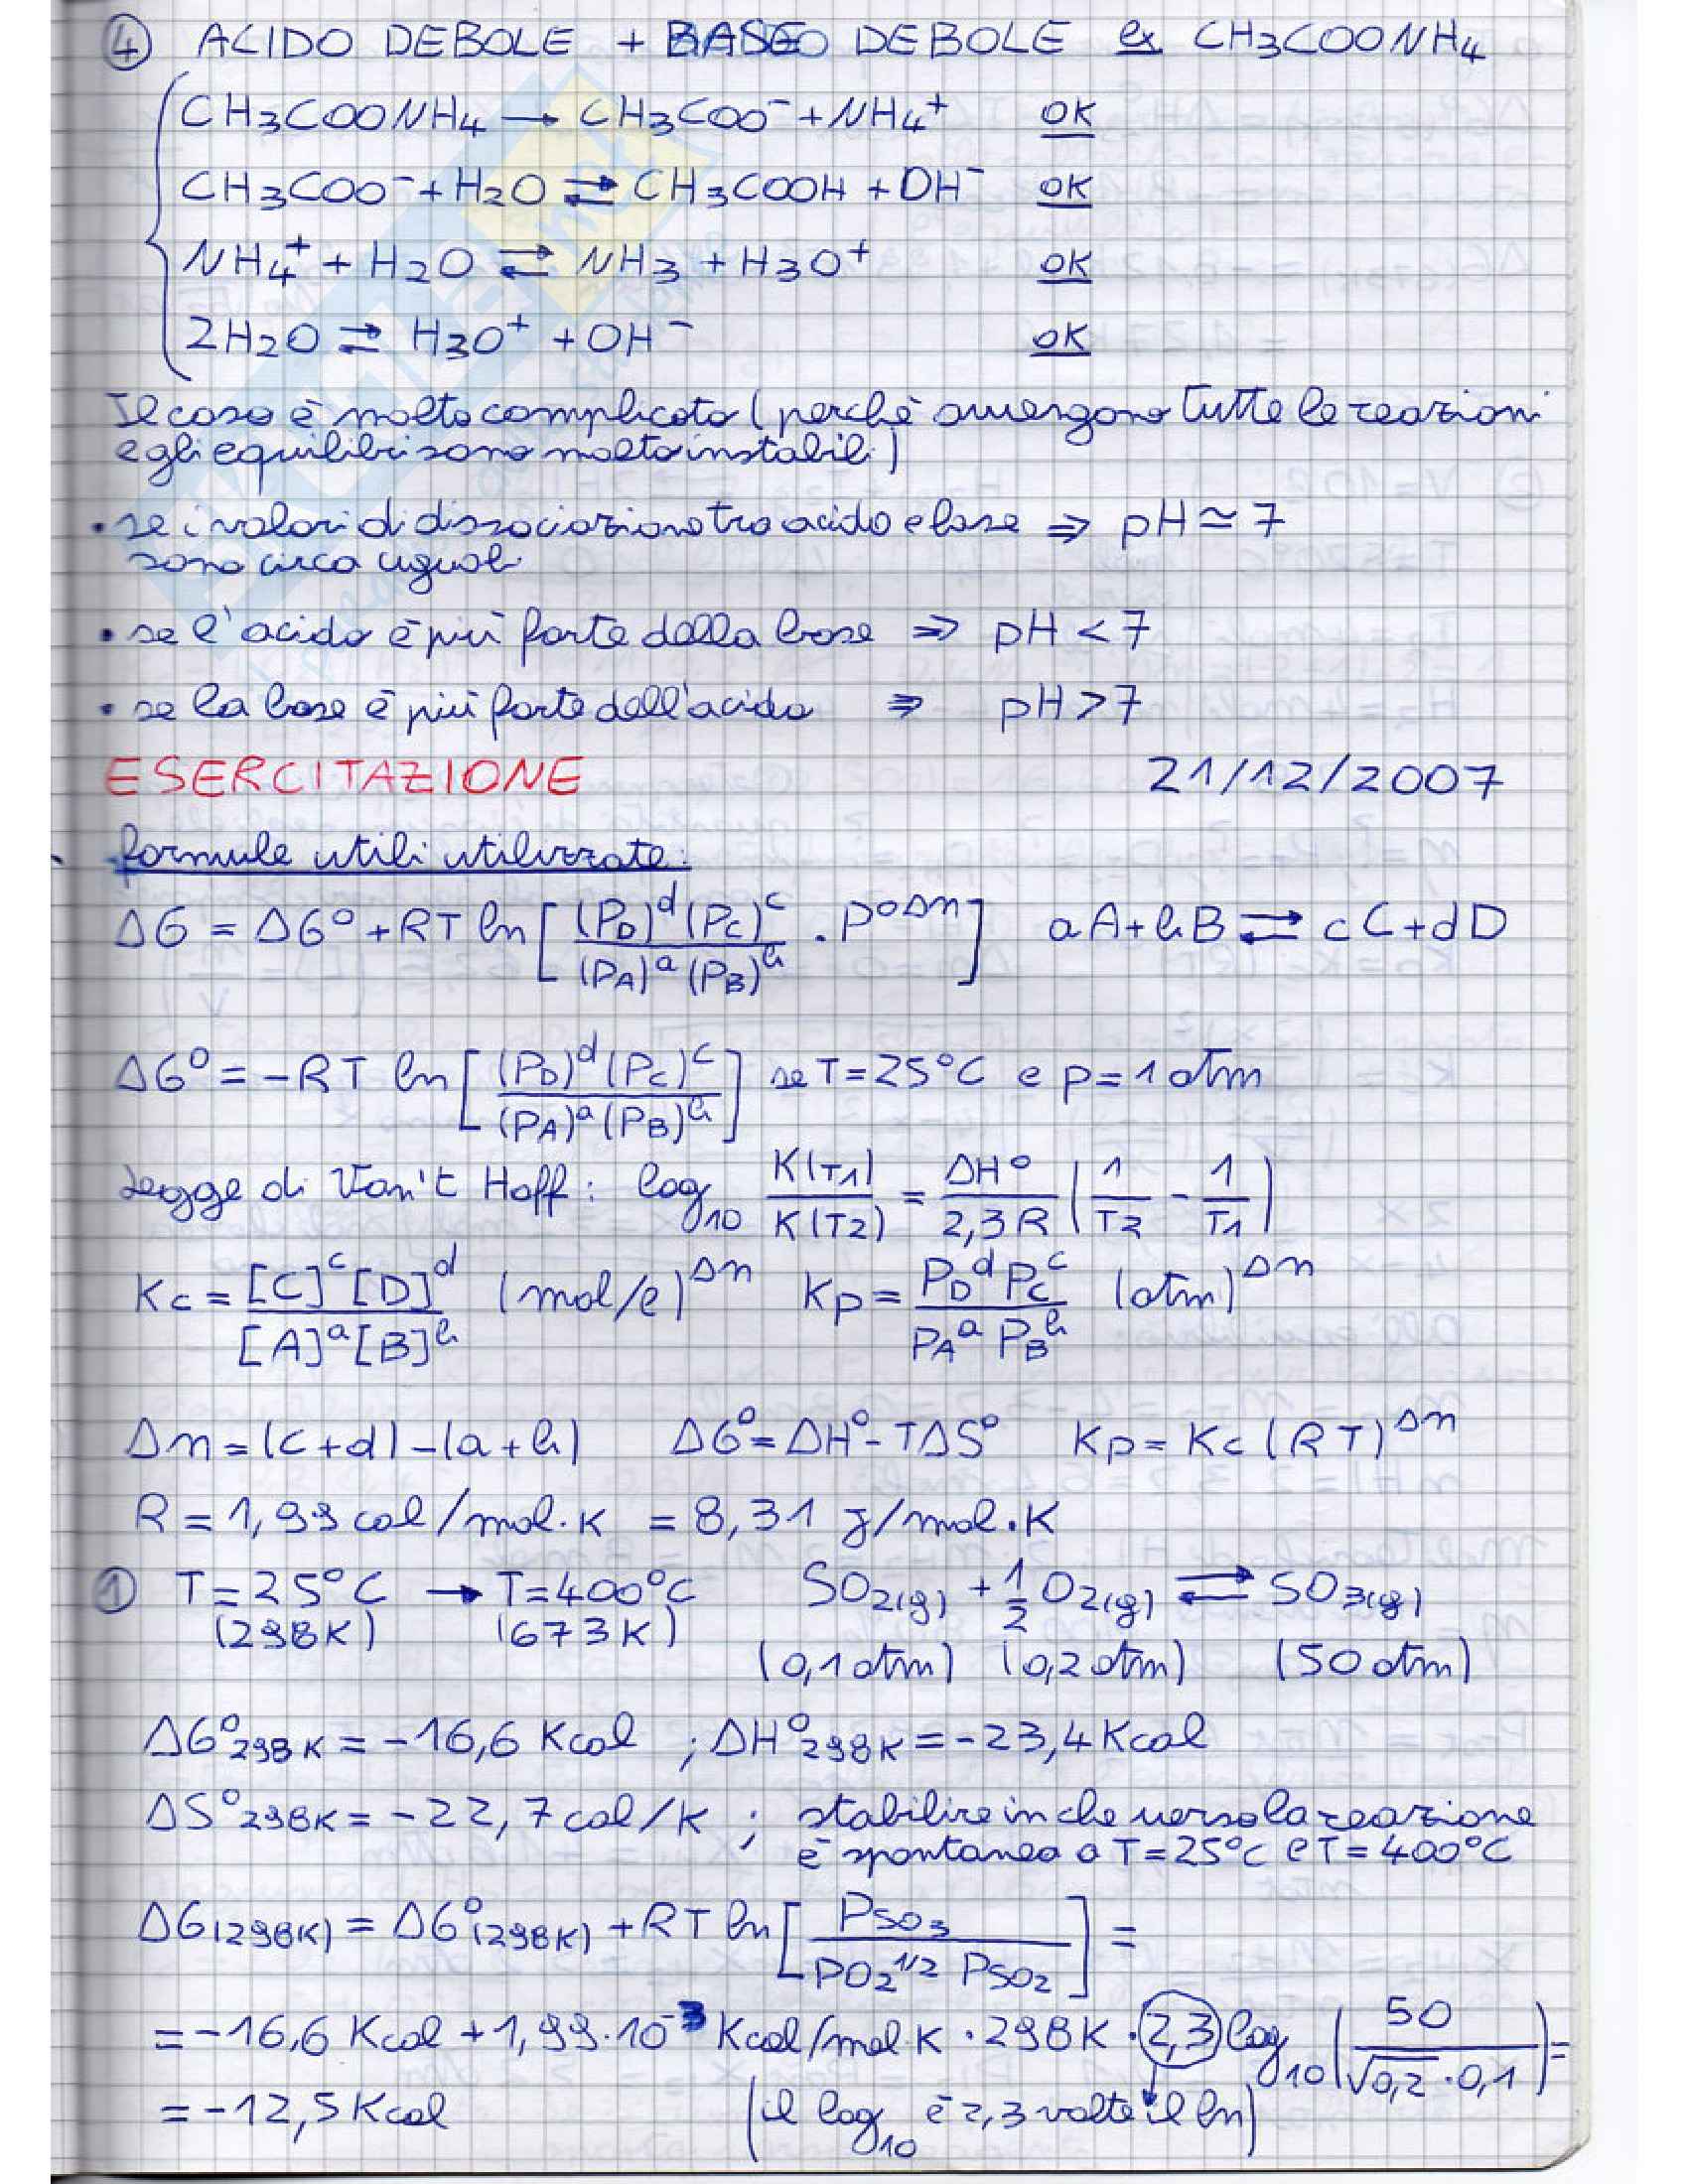 ④ ACIDO DEBOLE + BASE DEBOLE ex CH3COONH4
CH3COONH4 → CH3COO⁻ + NH4⁺ OK
CH3COO⁻ + H2O ⇄ CH3COOH + OH⁻ OK
NH4⁺ + H2O ⇄ NH3 + H3O⁺ OK
2H2O ⇄ H3O⁺ + OH⁻ OK
Il caso è molto complicato (perchè avvengono tutte le reazioni
e gli equilibri sono molto instabili)
• se i valori di dissociazione tra acido e base ⇒ pH ≃ 7
sono circa uguali
• se l'acido è più forte della base ⇒ pH < 7
• se la base è più forte dell'acido ⇒ pH > 7
ESERCITAZIONE 21/12/2007
formule utili utilizzate:
ΔG = ΔG° + RT ln [ (PD)^d (PC)^c / (PA)^a (PB)^b · P°^Δn ] aA + bB ⇄ cC + dD
ΔG° = -RT ln [ (PD)^d (PC)^c / (PA)^a (PB)^b ] se T = 25°C e p = 1 atm
Legge di Van't Hoff: log10 K(T1)/K(T2) = ΔH°/2,3R (1/T2 - 1/T1)
Kc = [C]^c [D]^d / [A]^a [B]^b (mol/l)^Δn Kp = PD^d PC^c / PA^a PB^b (atm)^Δn
Δn = (c+d) - (a+b) ΔG° = ΔH° - TΔS° Kp = Kc (RT)^Δn
R = 1,99 cal/mol·K = 8,31 J/mol·K
① T = 25°C → T = 400°C SO2(g) + 1/2 O2(g) ⇄ SO3(g)
(298K) (673K) (0,1 atm) (0,2 atm) (50 atm)
ΔG°298K = -16,6 Kcal ; ΔH°298K = -23,4 Kcal
ΔS°298K = -22,7 cal/K ; stabilire in che verso la reazione
è spontanea a T = 25°C e T = 400°C
ΔG(298K) = ΔG°(298K) + RT ln [ PSO3 / PO2^1/2 PSO2 ] =
= -16,6 Kcal + 1,99·10^-3 Kcal/mol·K · 298K · 2,3 log10 (50 / √0,2 · 0,1) =
= -12,5 Kcal (il log10 è 2,3 volte il ln)